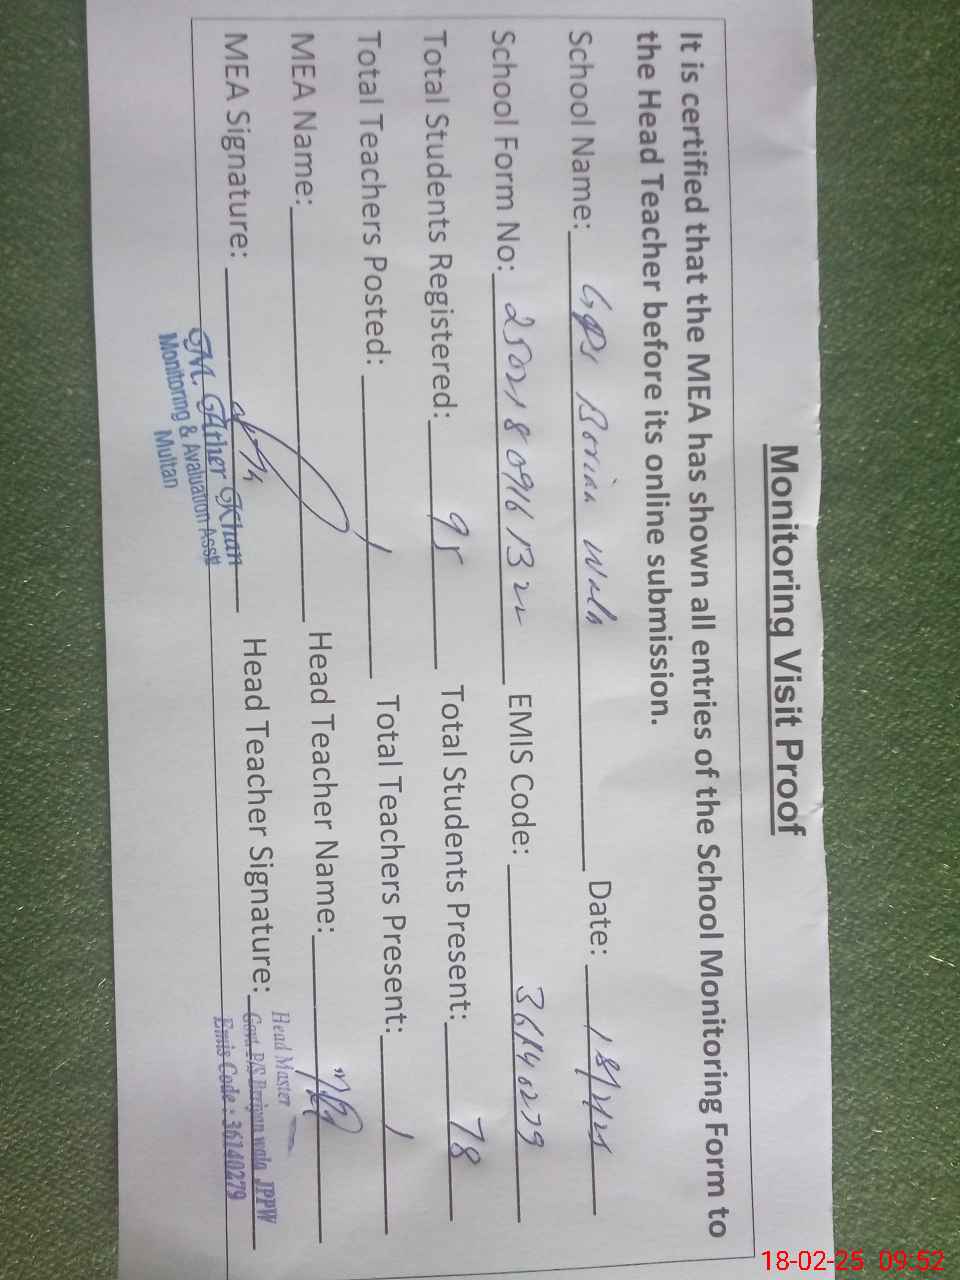 Monitoring Visit Proof
It is certified that the MEA has shown all entries of the School Monitoring Form to
the Head Teacher before its online submission.
School Name: GPS Borian Wala Date: 18/2/25
School Form No: EMIS Code: 36140279
Total Students Registered: 95 Total Students Present: 78
Total Teachers Posted: 1 Total Teachers Present: 1
MEA Name: Head Teacher Name:
MEA Signature: Head Teacher Signature:
M. Ather Khan
Monitoring & Avaluation Asstt
Multan
Head Master
Govt P/S Boriyan wala JPPW
Emis Code : 36140279
18-02-25 09:52